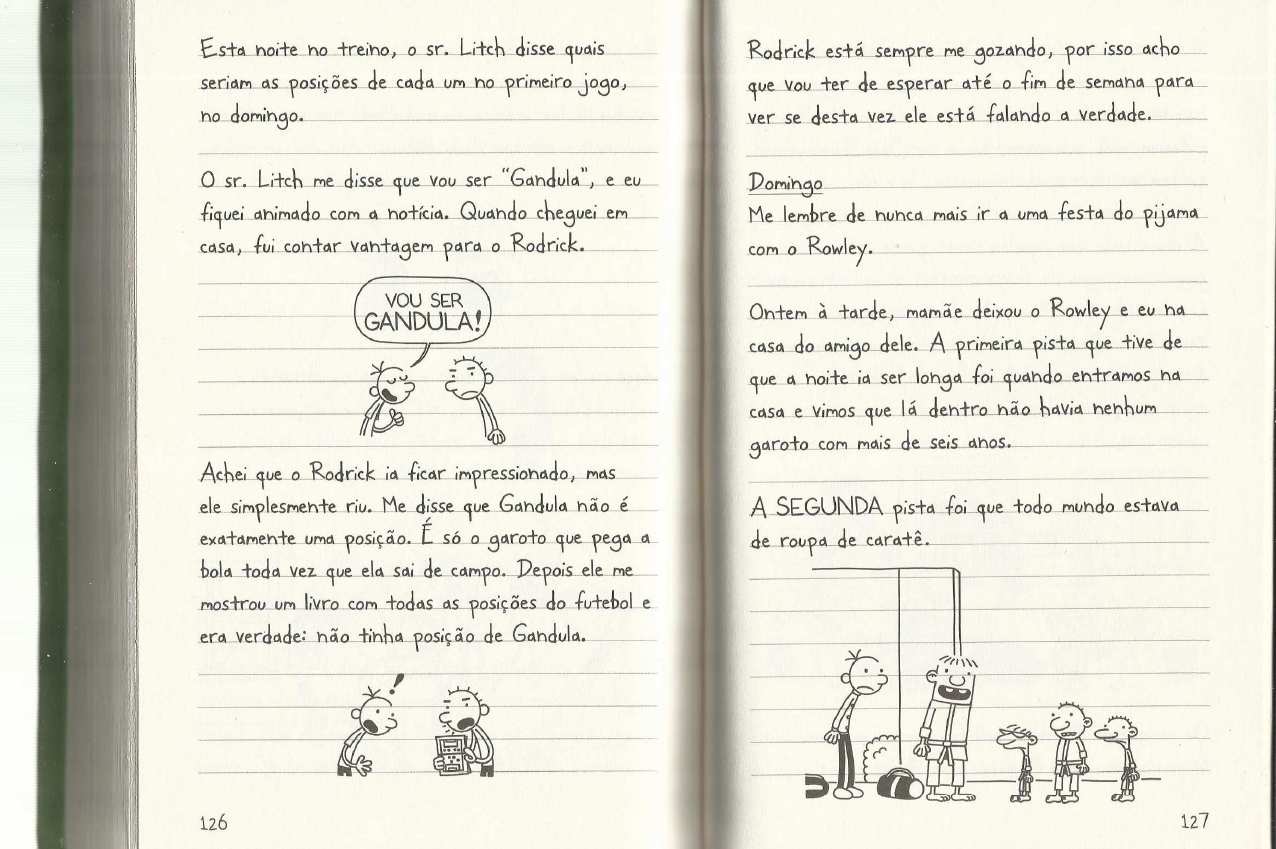 Esta noite no treino, o sr. Litch disse quais
seriam as posições de cada um no primeiro jogo,
no domingo.
O sr. Litch me disse que vou ser "Gandula", e eu
fiquei animado com a notícia. Quando cheguei em
casa, fui contar vantagem para o Rodrick.
VOU SER
GANDULA!
Achei que o Rodrick ia ficar impressionado, mas
ele simplesmente riu. Me disse que Gandula não é
exatamente uma posição. É só o garoto que pega a
bola toda vez que ela sai de campo. Depois ele me
mostrou um livro com todas as posições do futebol e
era verdade: não tinha posição de Gandula.
!
126
Rodrick está sempre me gozando, por isso acho
que vou ter de esperar até o fim de semana para
ver se desta vez ele está falando a verdade.
Domingo
Me lembre de nunca mais ir a uma festa do pijama
com o Rowley.
Ontem à tarde, mamãe deixou o Rowley e eu na
casa do amigo dele. A primeira pista que tive de
que a noite ia ser longa foi quando entramos na
casa e vimos que lá dentro não havia nenhum
garoto com mais de seis anos.
A SEGUNDA pista foi que todo mundo estava
de roupa de caratê.
127